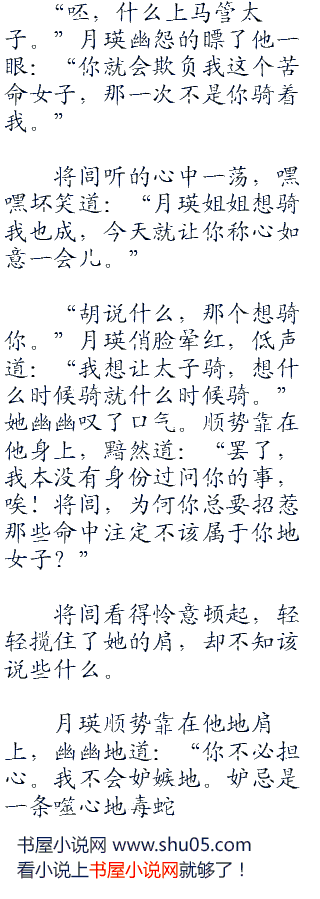 “呸，什么上马管太
子。”月瑛幽怨的瞟了他一
眼：“你就会欺负我这个苦
命女子，那一次不是你骑着
我。”
将闾听的心中一荡，嘿
嘿坏笑道：“月瑛姐姐想骑
我也成，今天就让你称心如
意一会儿。”
“胡说什么，那个想骑
你。”月瑛俏脸晕红，低声
道：“我想让太子骑，想什
么时候骑就什么时候骑。”
她幽幽叹了口气。顺势靠在
他身上，黯然道：“罢了，
我本没有身份过问你的事，
唉！将闾，为何你总要招惹
那些命中注定不该属于你地
女子？”
将闾看得怜意顿起，轻
轻揽住了她的肩，却不知该
说些什么。
月瑛顺势靠在他地肩
上，幽幽地道：“你不必担
心。我不会妒嫉地。妒忌是
一条噬心地毒蛇
书屋小说网 www.shu05.com
看小说上书屋小说网就够了！